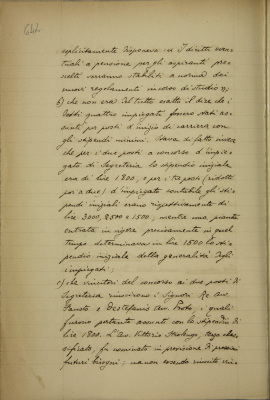 642.
esplicitamente disponeva: « I diritti even-
tuali a pensione per gli aspiranti pre-
scelti verranno stabiliti a norma dei
nuovi regolamenti in corso di studio »;
b) che non era del tutto esatto il dire che i
posti quattro impiegati furono stati as-
sunti per posti d'inizio di carriera con
gli stipendi minimi. Stava di fatto invece
che per i due posti a concorso d'impie-
gato di Segreteria lo stipendio iniziale
era di lire 1800, e per i tre posti (ridotti
poi a due) d'impiegato contabile gli sti-
pendi iniziali erano rispettivamente di
lire 3000, 2500 e 1500; mentre una pianta
entrata in vigore precisamente in quel
tempo determinava in lire 1500 lo sti-
pendio iniziale della generalità degli
impiegati;
c) che vincitori del concorso ai due posti di
Segreteria riuscirono i Signori Re Avv.
Fausto e Destefanis Avv. Proto, i quali
furono pertanto assunti con lo stipendio di
lire 1800. L'Av. Vittorio terzo clas-
sificato, fu nominato in previsione di prossimi
futuri bisogni; ma non essendo